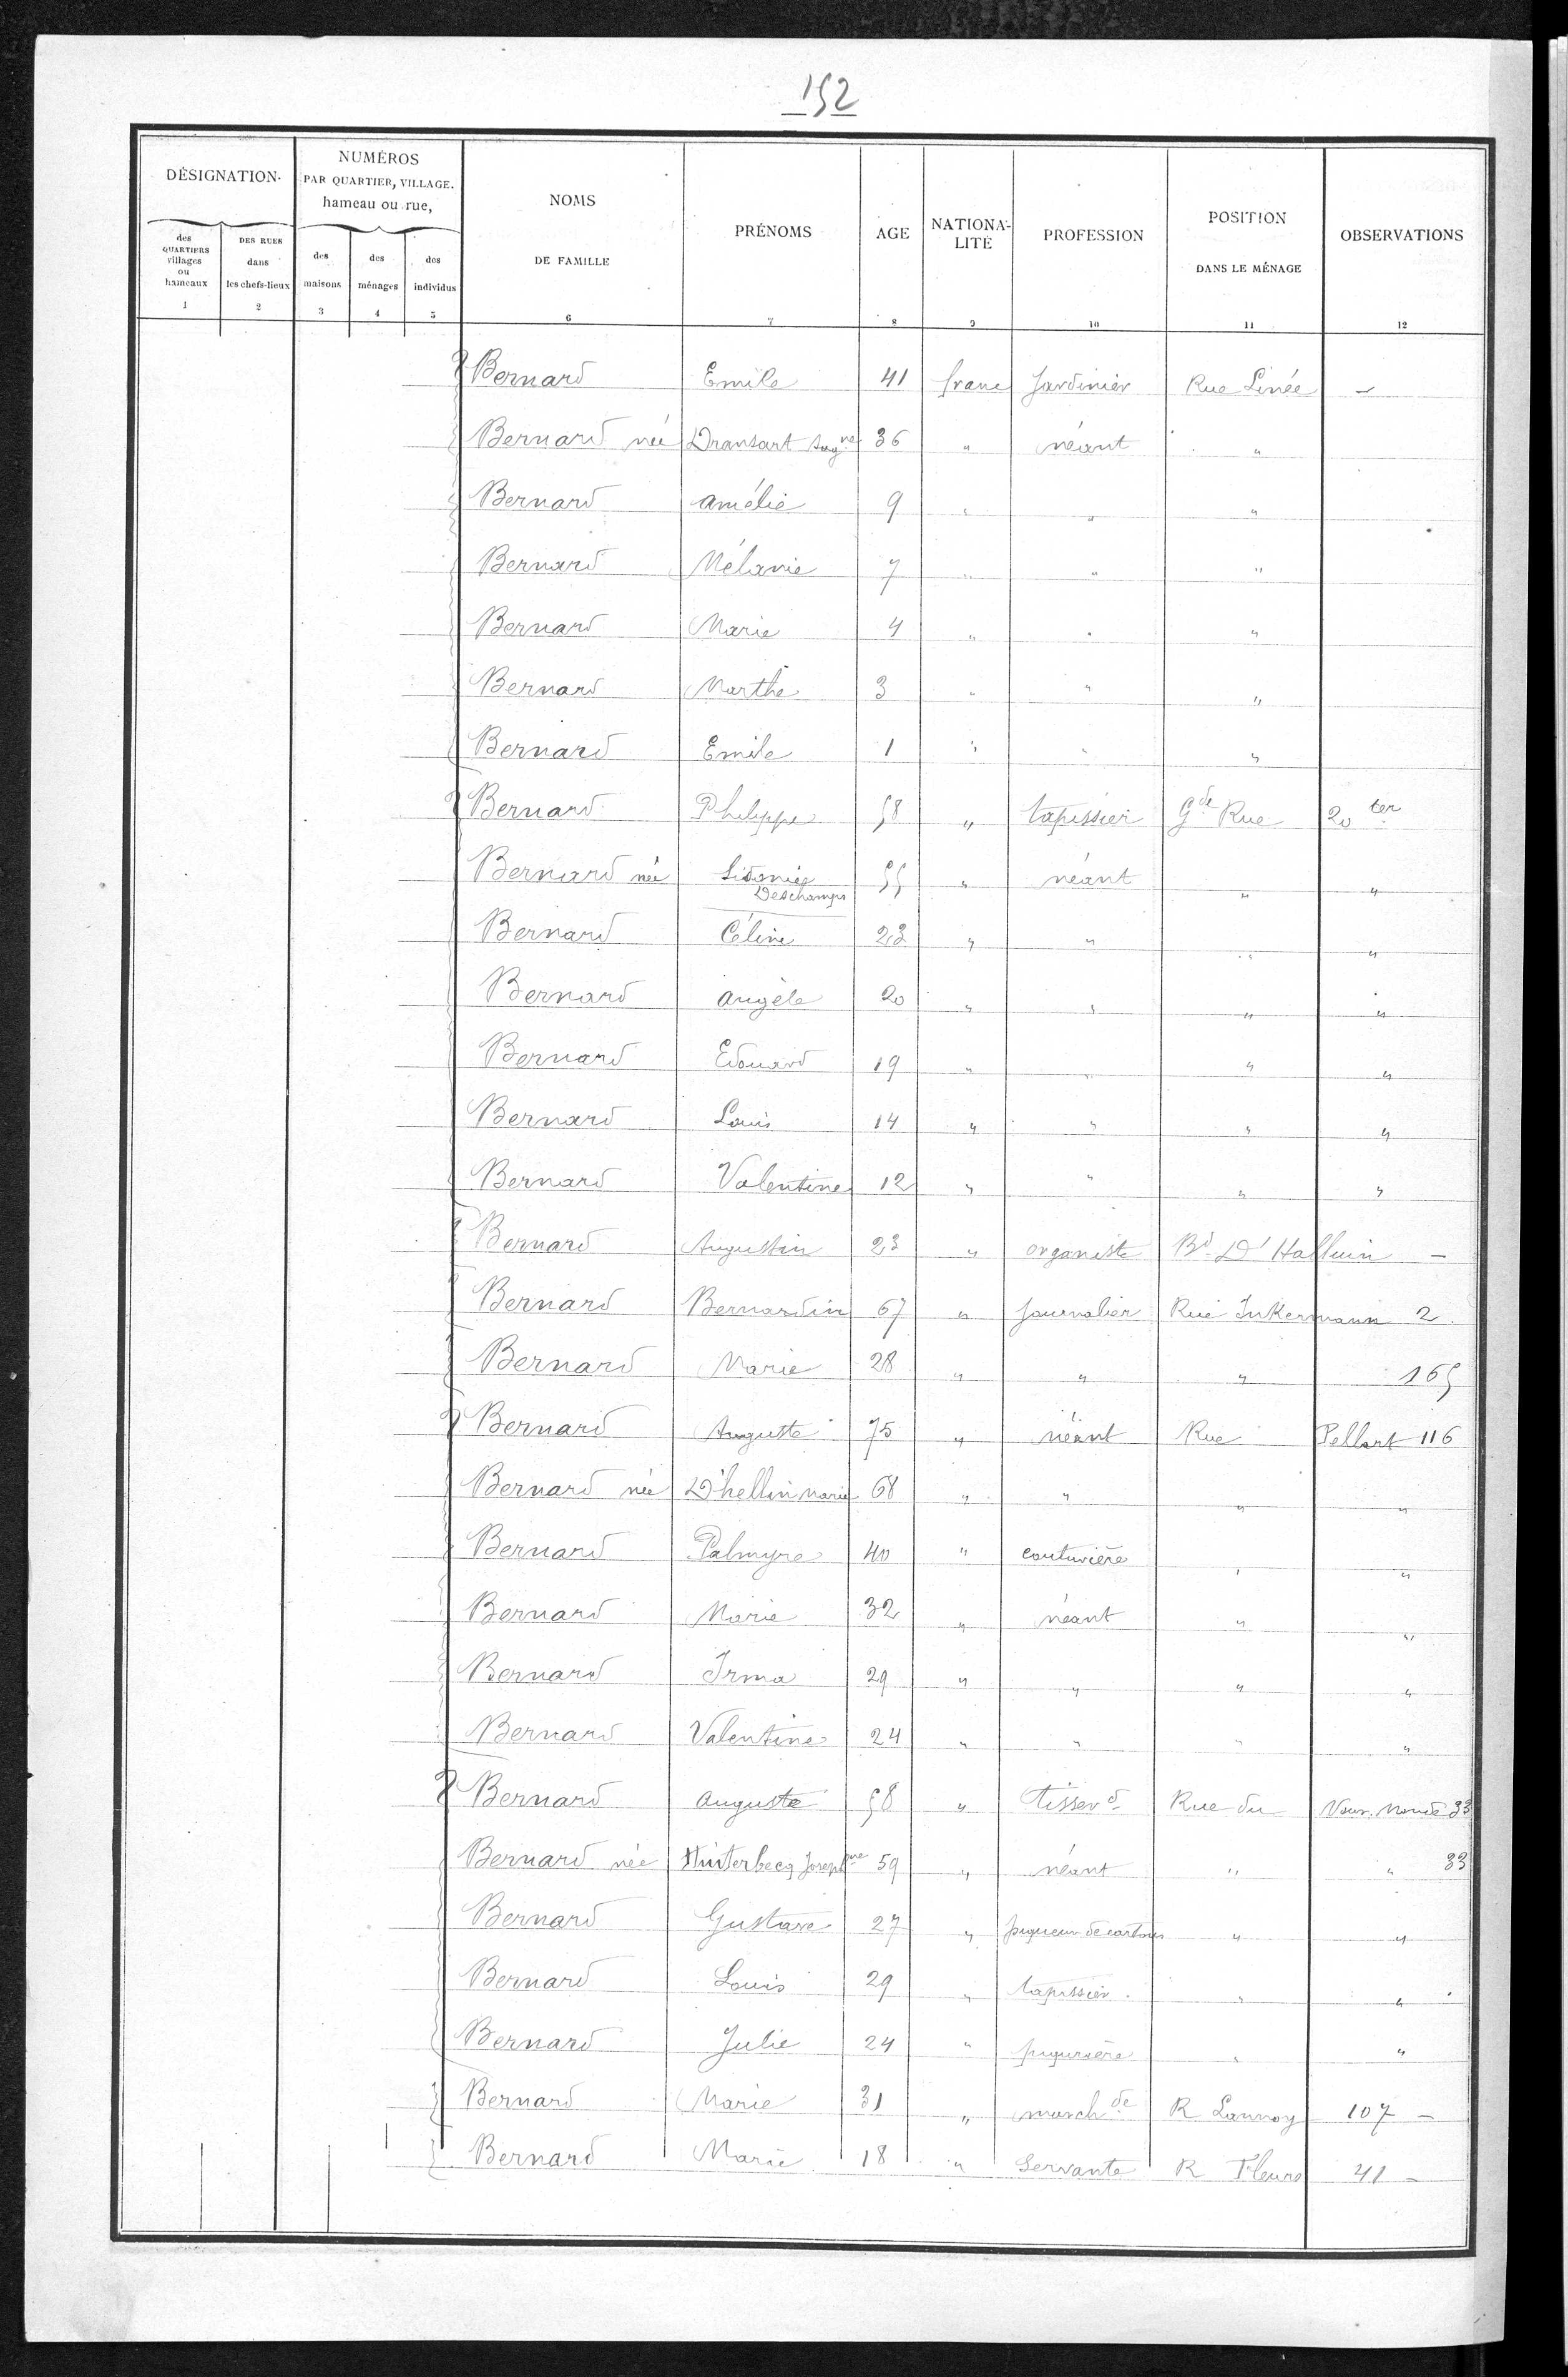 152
DÉSIGNATION. NUMÉROS PAR QUARTIER, VILLAGE. hameau ou rue, NOMS DE FAMILLE PRÉNOMS AGE NATIONA-LITÉ PROFESSION POSITION DANS LE MÉNAGE OBSERVATIONS
des QUARTIERS villages ou hameaux DES RUES dans les chefs-lieux des maisons des ménages des individus
1 2 3 4 5 6 7 8 9 10 11 12
Bernard Emile 41 franc Jardinier Rue Linée -
Bernard née Dransart Aug^ne 36 " néant "
Bernard Amélie 9 " " "
Bernard Mélanie 7 " " "
Bernard Marie 4 " " "
Bernard Marthe 3 " " "
Bernard Emile 1 " " "
Bernard Philippe 58 " tapissier G^de Rue 20 ter
Bernard née Sidonie Deschamps 55 " néant " "
Bernard Céline 23 " " " "
Bernard Angèle 20 " " " "
Bernard Edouard 19 " " " "
Bernard Louis 14 " " " "
Bernard Valentine 12 " " " "
Bernard Augustin 23 " organiste B^d D'Halluin -
Bernard Bernardin 67 " Journalier Rue Inkermann 2
Bernard Marie 28 " " " 165
Bernard Auguste 75 " néant Rue Pellart 116
Bernard née D'hellin Marie 68 " " " "
Bernard Palmyre 40 " couturière " "
Bernard Marie 32 " néant " "
Bernard Irma 29 " " " "
Bernard Valentine 24 " " " "
Bernard Auguste 58 " tisser^d Rue du Nouv. Monde 33
Bernard née Huiterbecq Joseph^ne 59 " néant " " 33
Bernard Gustave 27 " piqueur de cartons " "
Bernard Louis 29 " tapissier " "
Bernard Julie 24 " piqurière " "
Bernard Marie 31 " march^de R Lannoy 107 -
Bernard Marie 18 " Servante R Fleurs 41 -